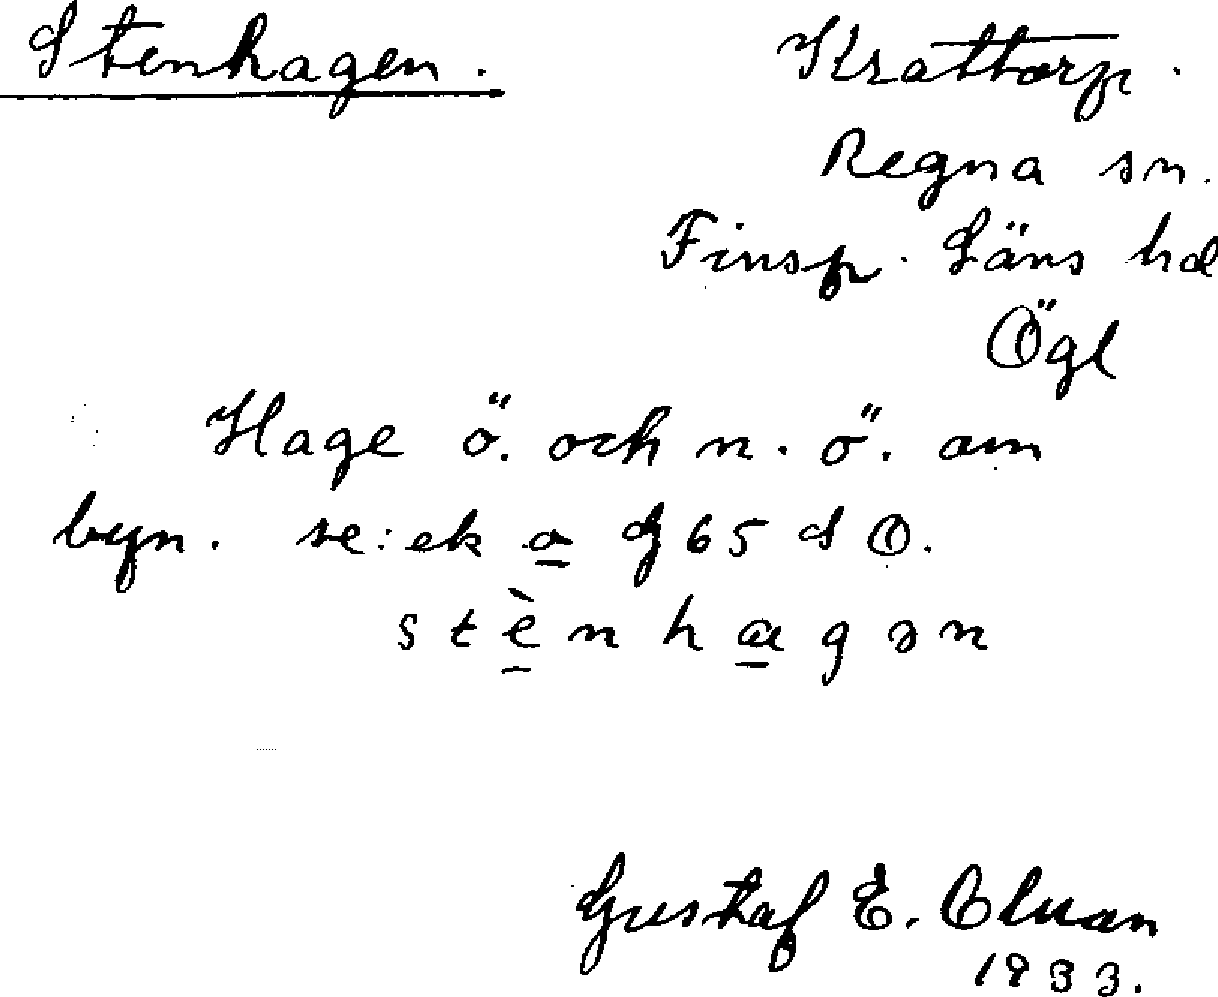 Stenhagen.
Krattorp.
Regna sn.
Finsp. Läns hd
Ögl
Hage ö. och n.ö. om
byn. se: ek a G 65 d O.
stènhagən
Gustaf E.
1933.